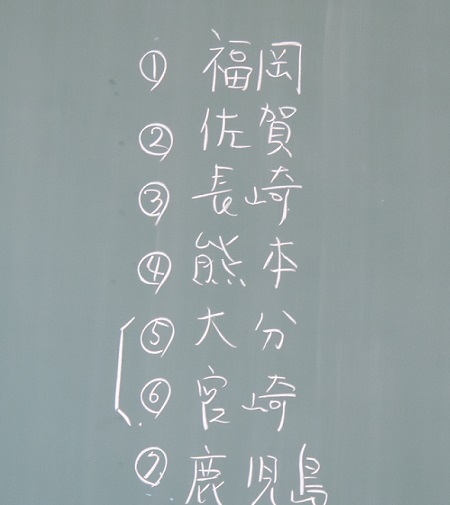 ① 福岡
② 佐賀
③ 長崎
④ 熊本
⑤ 大分
⑥ 宮崎
⑦ 鹿児島